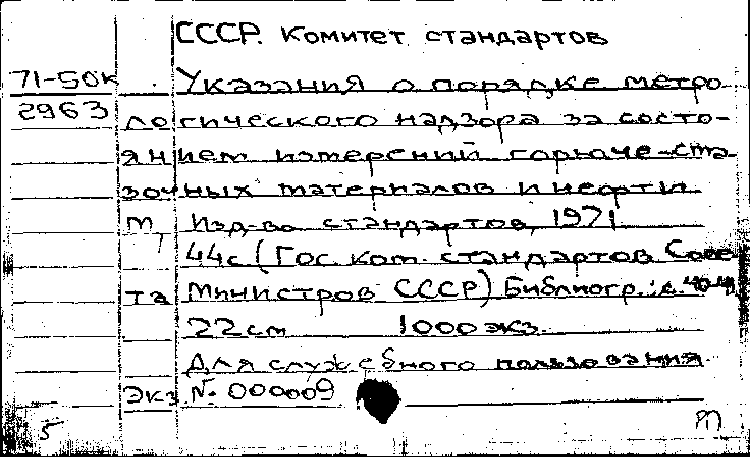 СССР. Комитет стандартов
71-50к Указания о порядке метро
2963 логического надзора за состо-
янием измерений горюче-сма-
зочных материалов и нефти.
М, Изд-во стандартов, 1971
44с (Гос. ком. стандартов Сове-
та Министров СССР) Библиогр.: с. 40-41
22 см 1000 экз.
Для служебного пользования
Экз. № 000009
5